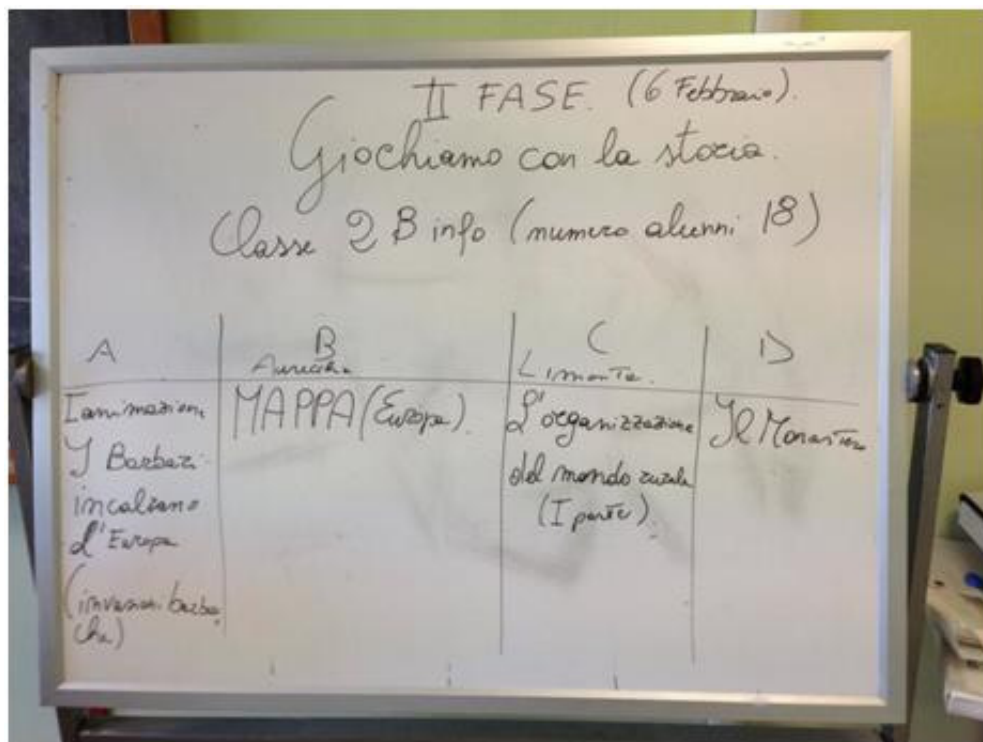 II FASE. (6 Febbraio).
Giochiamo con la storia.
Classe 2 B info (numero alunni 18)
A
I animazione
I Barbari
incalzano
l'Europa
(invasioni barba
che)
B
MAPPA (Europa).
C
Limonta.
L'organizzazione
del mondo rurale
(I parte).
D
Il Monastero